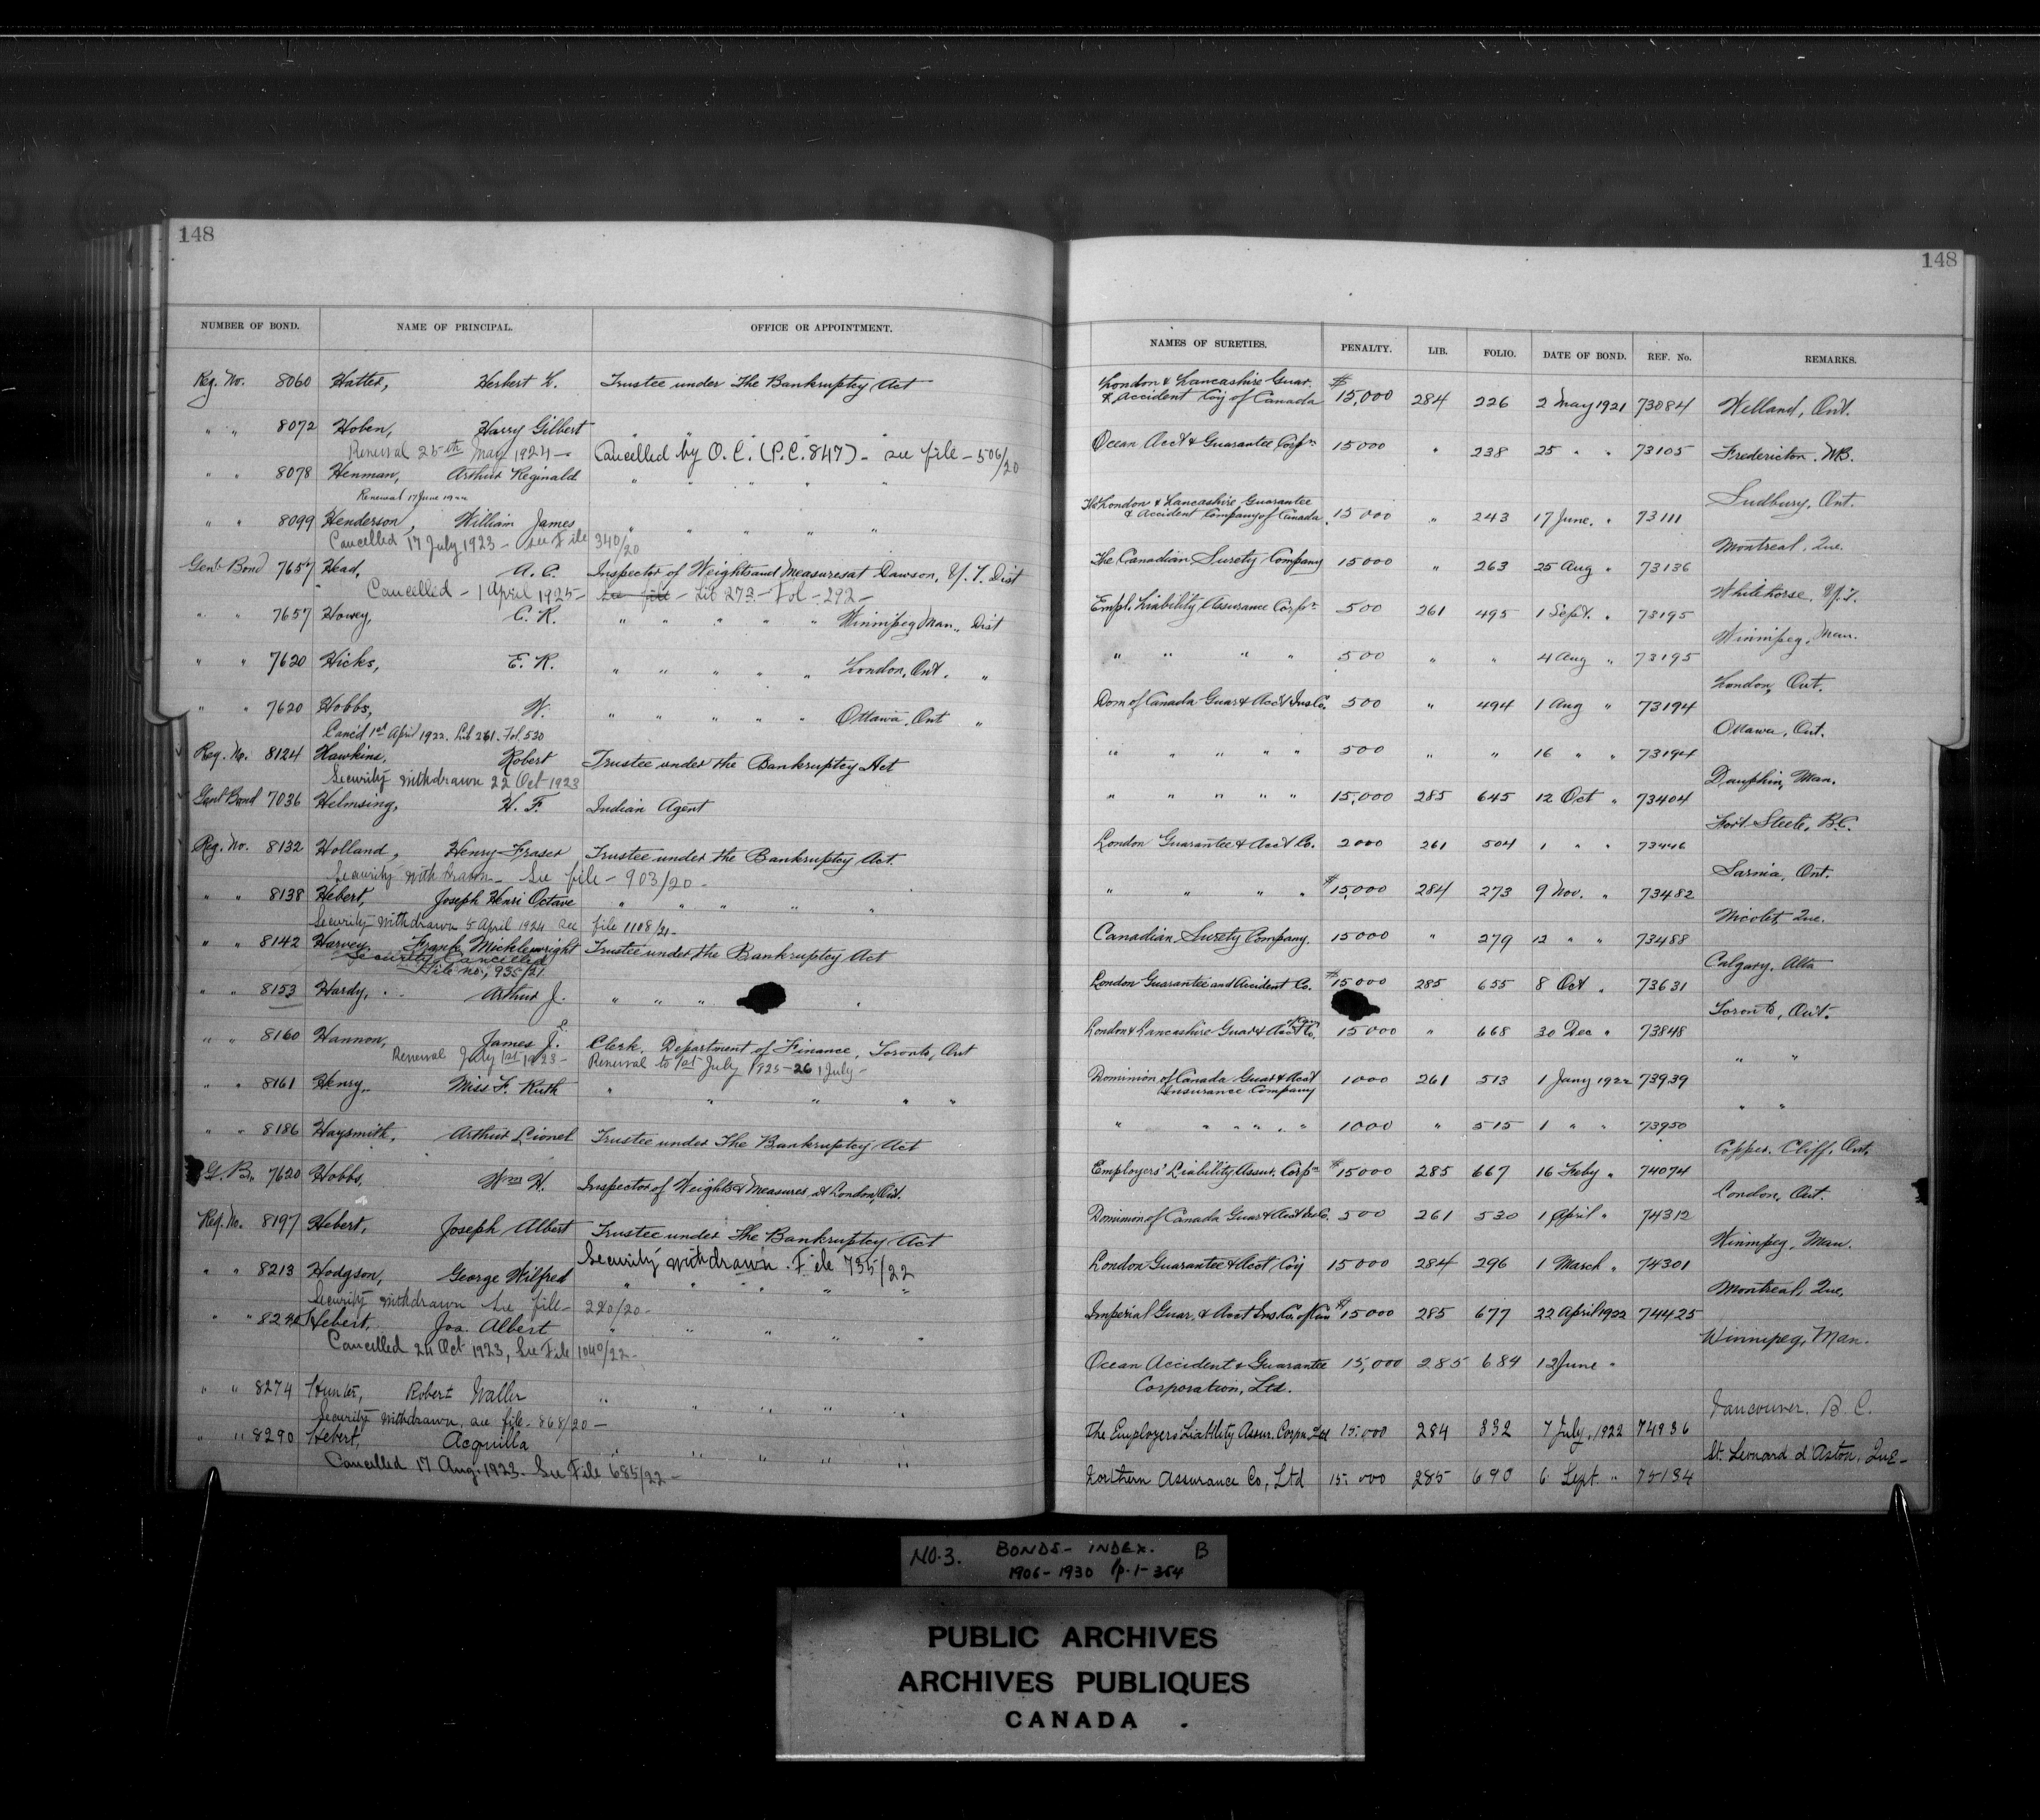 148
148
NUMBER OF BOND. NAME OF PRINCIPAL. OFFICE OR APPOINTMENT. NAMES OF SURETIES. PENALTY. LIB. FOLIO. DATE OF BOND. REF. No. REMARKS.
Reg. No. 8060 Hatter, Herbert L. Trustee under The Bankruptcy Act
" " 8072 Hoben, Harry Gilbert " " " "
Renewal 25th May 1924 – Cancelled by O.C. (P.C. 847) – see file – 506/20
" " 8078 Henman, Arthur Reginald " " " " "
Renewal 17 June 1922
" " 8099 Henderson, William James " " " "
Cancelled 17 July 1923 – See File 340/20
Genl. Bond 7657 Head, A. C. Inspector of Weights and Measures at Dawson, Y.T. Dist
Cancelled – 1 April 1925 – see file – Lib 273 – Fol – 292 –
" " 7657 Howey, C. R. " " " " " Winnipeg Man., Dist
" " 7620 Hicks, E. R. " " " " " London, Ont. "
" " 7620 Hobbs, W. " " " " " Ottawa, Ont "
Canc'd 1st April 1922. Lib 261. Fol. 530
Reg. No. 8124 Hawkins, Robert Trustee under the Bankruptcy Act
Security withdrawn 22 Oct 1923
Genl Bond 7036 Helmsing, H. F. Indian Agent
Reg. No. 8132 Holland, Henry Fraser Trustee under the Bankruptcy Act.
Security withdrawn – See file – 903/20 –
" " 8138 Hebert, Joseph Henri Octave " " " " "
Security withdrawn 5 April 1924 see file 1108/21 –
" " 8142 Harvey, Frank Micklewright Trustee under the Bankruptcy Act
Security Cancelled
File no., 935/21
" " 8153 Hardy, Arthur J. " " " "
" " 8160 Hannon, James J. Clerk, Department of Finance, Toronto, Ont
Renewal July 1st 1923 – Renewal to 1st July 1925 – 26 1 July –
" " 8161 Henry, Miss F. Ruth " " " " "
" " 8186 Haysmith, Arthur Lionel Trustee under The Bankruptcy Act
G. B. 7620 Hobbs, Wm H. Inspector of Weights & Measures at London, Ont.
Reg. No. 8197 Hebert, Joseph Albert Trustee under The Bankruptcy Act
Security withdrawn. File 735/22
" " 8213 Hodgson, George Wilfred " " " " "
Security withdrawn see file – 220/20 –
" " Hebert, Jos. Albert " " " " "
Cancelled 24 Oct 1923, See File 1040/22 –
" " 8274 Hunter, Robert Waller " " " " "
Security withdrawn, see file – 868/20 –
" " 8290 Hebert, Acquilla " " " " "
Cancelled 17 Aug. 1923. See File 685/22 –
London & Lancashire Guar.
& Accident Coy of Canada $ 15,000 284 226 2 May 1921 73084 Welland, Ont.
Ocean Acct & Guarantee Corpn 15000 " 238 25 " " 73105 Fredericton. N.B.
The London & Lancashire Guarantee
& Accident Company of Canada. 15000 " 243 17 June. " 73111 Sudbury, Ont.
The Canadian Surety Company 15000 " 263 25 Aug " 73136 Montreal, Que.
Empl. Liability Assurance Corpn 500 261 495 1 Sept. " 73195 Whitehorse, Y.T.
" " " " 500 " " 4 Aug " 73195 Winnipeg, Man.
Dom of Canada Guar & Acc't Ins Co. 500 " 494 1 Aug " 73194 London, Ont.
" " " " " 500 " " 16 " " 73194 Ottawa, Ont.
" " " " " 15,000 285 645 12 Oct " 73404 Dauphin, Man.
London Guarantee & Acc't Co. 2000 261 504 1 " " 73446 Fort Steele, B.C.
" " " " $15,000 284 273 9 Nov. " 73482 Sarnia, Ont.
Canadian Surety Company. 15000 " 279 12 " " 73488 Nicolet, Que.
London Guarantee and Accident Co. $15000 285 655 8 Oct " 73631 Calgary, Alta
London & Lancashire Guar & Acc't Co. of Can 15000 " 668 30 Dec " 73848 Toronto, Ont.
Dominion of Canada Guar & Acc't
Insurance Company 1000 261 513 1 Jany 1922 73939 " "
" " " " " " 1000 " 515 1 " " 73950 " "
Employers' Liability Assur. Corpn $15000 285 667 16 Feby " 74074 Copper Cliff, Ont.
Dominion of Canada Guar & Acc't Ins Co. 500 261 530 1 April " 74312 London, Ont.
London Guarantee & Acct Coy 15000 284 296 1 March " 74301 Winnipeg, Man.
Imperial Guar. & Acct Ins. Co. of Can $15000 285 677 22 April 1922 74425 Montreal, Que,
Ocean Accident & Guarantee
Corporation, Ltd. 15,000 285 684 12 June " Winnipeg, Man.
The Employers Liability Assur. Corpn. Ltd 15,000 284 332 7 July, 1922 74936 Vancouver. B. C.
Northern Assurance Co, Ltd 15,000 285 690 6 Sept. " 75134 St. Leonard d'Aston, Que –
NO. 3. BONDS – INDEX. B
1906 – 1930 p. 1 – 354
PUBLIC ARCHIVES
ARCHIVES PUBLIQUES
CANADA